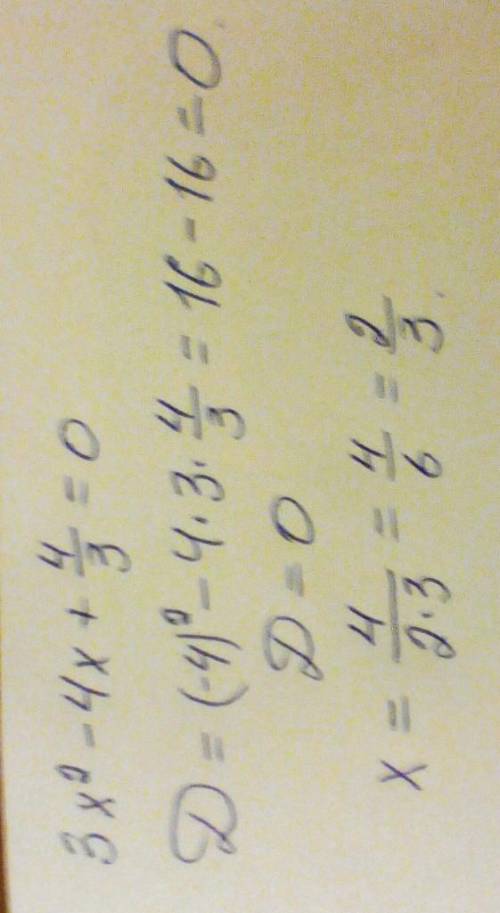 3x² - 4x + 4/3 = 0
D = (-4)² - 4·3·4/3 = 16 - 16 = 0.
D = 0
x = 4/2·3 = 4/6 = 2/3.